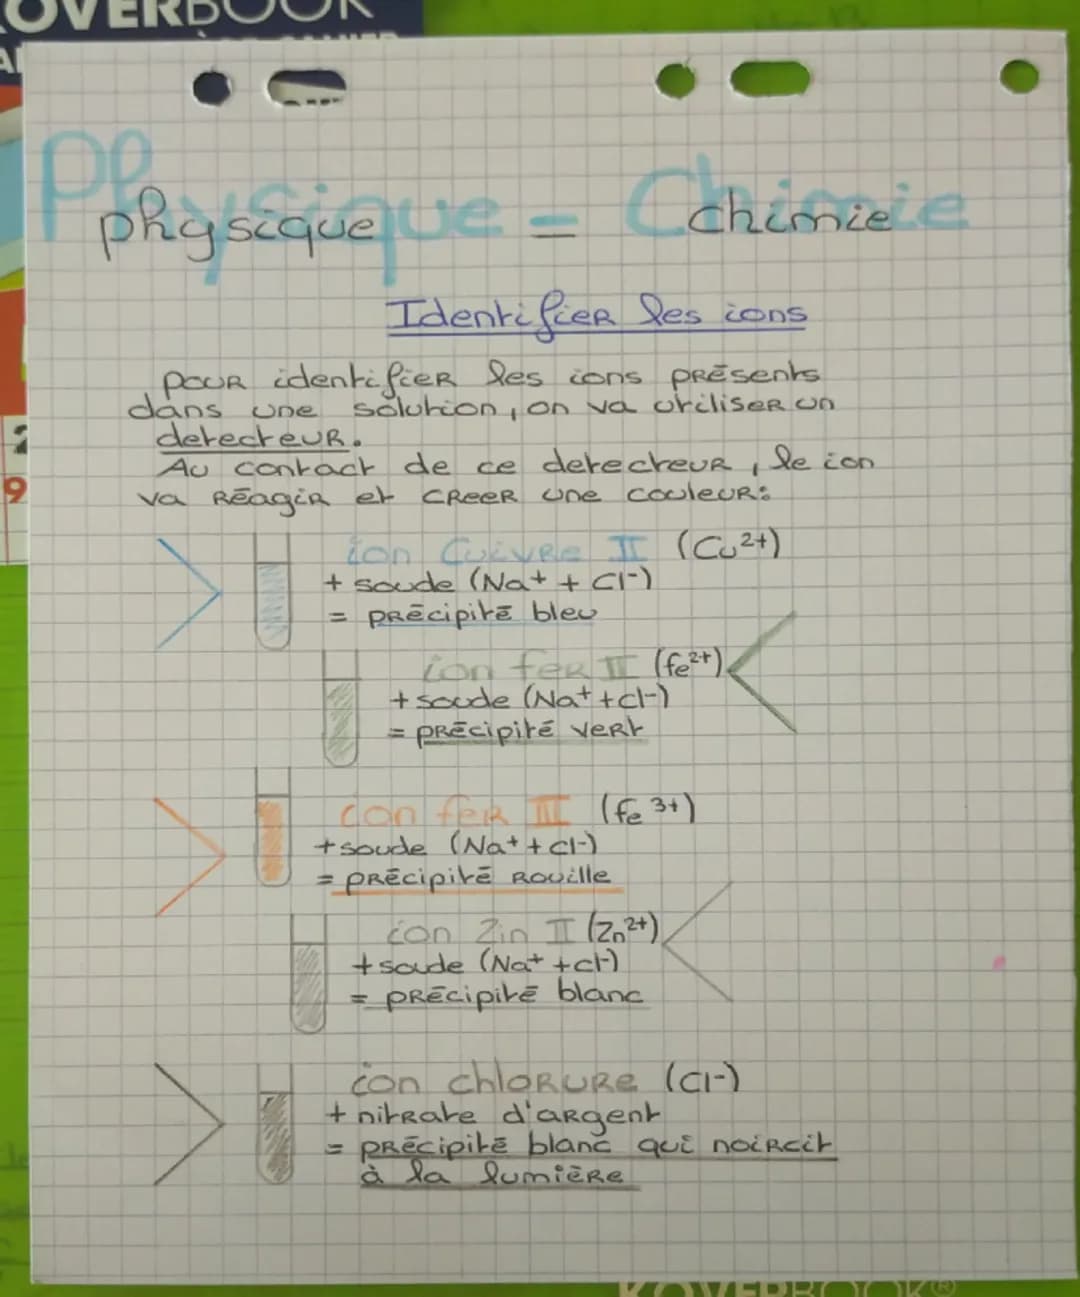 OVERBOOK
Physique = Chimie
physique chimie
Identifier les ions
pour identifier les ions présents
dans une solution, on va utiliser un
detecteur.
Au contact de ce detecteur, le ion
va Réagir et creer une couleur:
ion Cuivre II (Cu²⁺)
+ soude (Na⁺ + Cl⁻)
= précipité bleu
ion fer II (fe²⁺)
+ soude (Na⁺ + Cl⁻)
= précipité vert
ion fer III (fe³⁺)
+ soude (Na⁺ + Cl⁻)
= précipité Rouille
ion Zin II (Zn²⁺)
+ soude (Na⁺ + Cl⁻)
= précipité blanc
ion chlorure (Cl⁻)
+ nitrate d'argent
= précipité blanc qui noircit
à la lumière
KOVERBOOK®